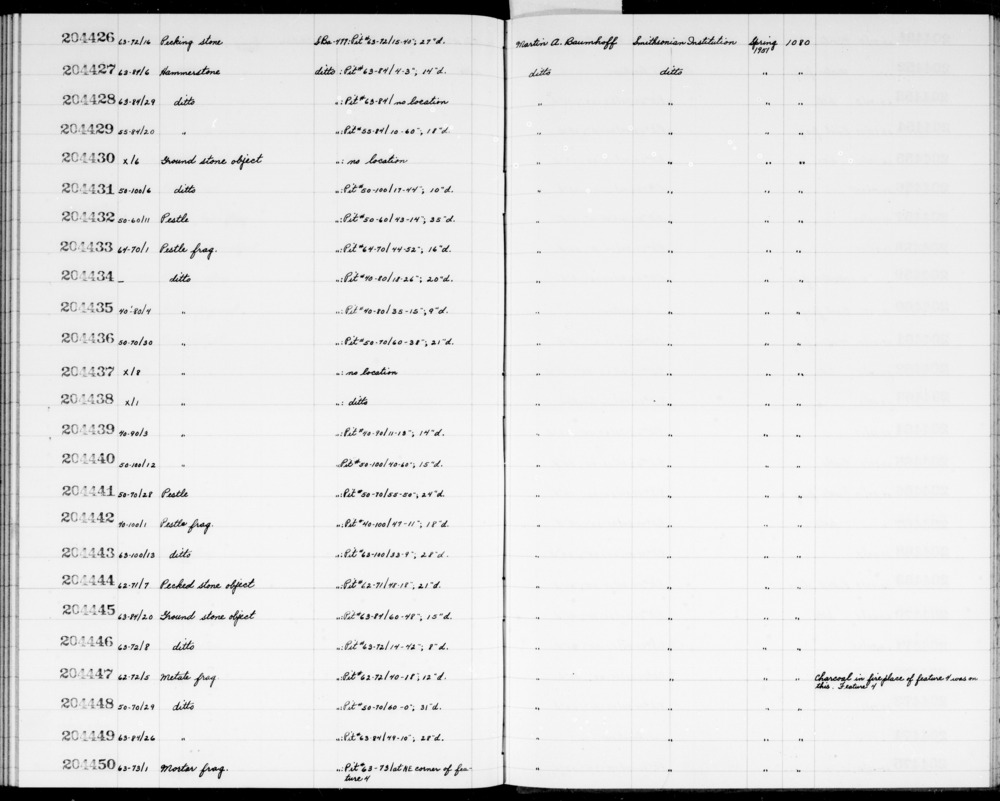 204426 63-72/16 Pecking stone SBa-477: Pit #63-72/15-40"; 27"d. Martin A. Baumhoff Smithsonian Institution Spring 1951 1080
204427 63-84/6 Hammerstone ditto : Pit #63-84/4-3"; 14"d. ditto ditto " "
204428 63-84/29 ditto " : Pit #63-84/ no location " " " "
204429 55-84/20 " " : Pit #55-84/10-60"; 18"d. " " " "
204430 X/6 Ground stone object " : no location " " " "
204431 50-100/6 ditto " : Pit #50-100/17-44"; 10"d. " " " "
204432 50-60/11 Pestle " : Pit #50-60/43-14"; 35"d. " " " "
204433 64-70/1 Pestle frag. " : Pit #64-70/44-52"; 16"d. " " " "
204434 – ditto " : Pit #40-80/18-26"; 20"d. " " " "
204435 40-80/4 " " : Pit #40-80/35-15"; 9"d. " " " "
204436 50-70/30 " " : Pit #50-70/60-38"; 21"d. " " " "
204437 X/8 " " : no location " " " "
204438 X/1 " " : ditto " " " "
204439 40-90/3 " " : Pit #40-90/11-13"; 14"d. " " " "
204440 50-100/12 " Pit #50-100/40-60"; 15"d. " " " "
204441 50-70/28 Pestle " : Pit #50-70/55-50"; 24"d. " " " "
204442 40-100/1 Pestle frag. " : Pit #40-100/47-11"; 18"d. " " " "
204443 63-100/13 ditto " : Pit #63-100/33-9"; 28"d. " " " "
204444 62-71/7 Pecked stone object " : Pit #62-71/48-18"; 21"d. " " " "
204445 63-84/20 Ground stone object " : Pit #63-84/60-48"; 15"d. " " " "
204446 63-72/8 ditto " : Pit #63-72/14-42"; 8"d. " " " "
204447 62-72/5 Metate frag " : Pit #62-72/40-18"; 12"d. " " " " Charcoal in fireplace of feature 4 was on
this. Feature 4
204448 50-70/29 ditto " : Pit #50-70/60-0"; 31"d. " " " "
204449 63-84/26 " " : Pit #63-84/49-10"; 28"d. " " " "
204450 63-73/1 Mortar frag. " : Pit #63-73/ at NE corner of fea- " " " "
ture 4